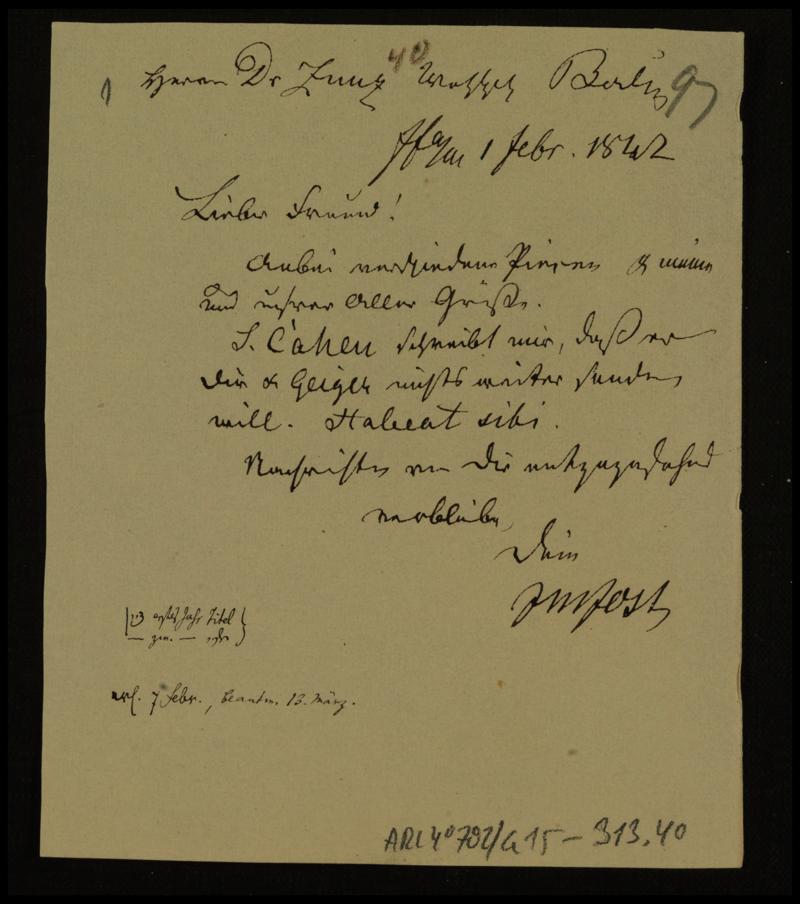 40
1 Herrn Dr Zunz Berlin 97
Ffa/m 1 Febr. 1842
Lieber Freund!
Anbei verschiedene Piecen & meine
und unsrer Aller Grüße.
S. Cahen schreibt mir, daß er
Dir & Geiger nichts weiter senden
will. Habeat sibi.
Nachrichten von Dir entgegensehend
verbleibe,
Dein
JMJost
erstes Jahr Titel
erh. 7 Febr., beantw. 13. März.
ARC 4° 792/G 15 - 313.40